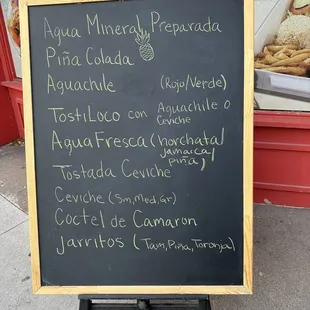 Agua Mineral Preparada
Piña Colada
Aguachile (Rojo/Verde)
TostiLoco con Aguachile o
Ceviche
Agua Fresca (horchata/
jamaica/
piña)
Tostada Ceviche
Ceviche (Sm,Med,Gr)
Coctel de Camaron
Jarritos (Tam,Piña,Toronja)